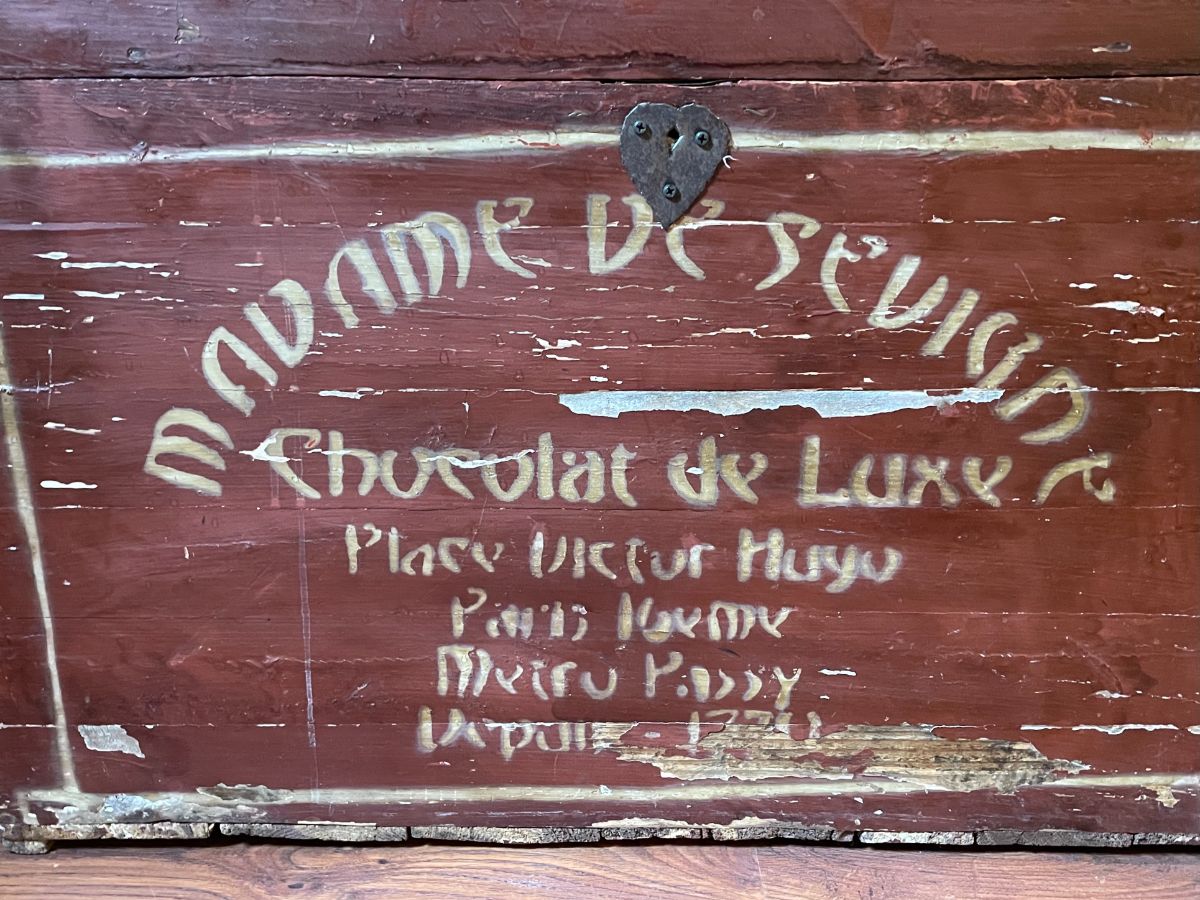 MADAME DE SEVIGNE
Chocolat de Luxe
Place Victor Hugo
Paris 16eme
Metro Passy
Depuis